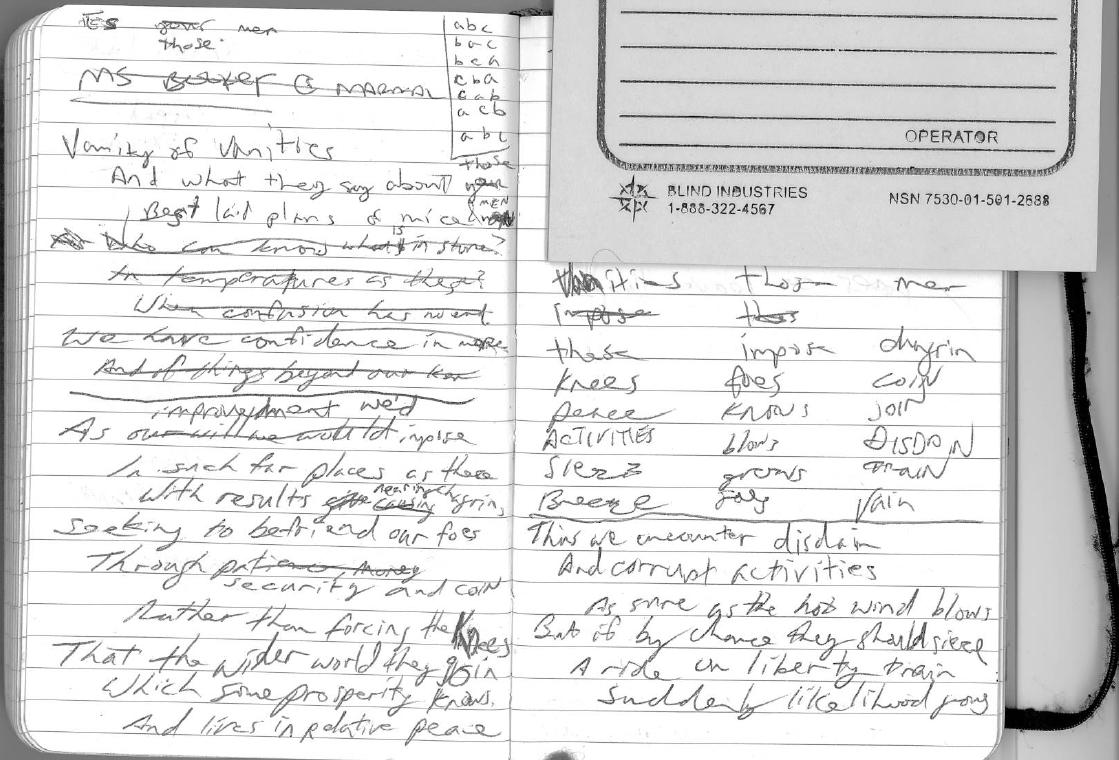 Es your men
those.
MS Boxer @ MARMAL
abc
bac
bca
cba
cab
acb
abc
Vanity of Vanities
And what they say about those
Best laid plans of mice & MEN
who can know what is in store?
In temperatures as these?
When confusion has no end
We have confidence in
And of things beyond our ken
improvement we'd
As our will we would impose
In such far places as these
With results nearing chagrin,
causing
Seeking to befriend our foes
Through patience, money
security and coin
Rather than forcing the Knees
That the wider world they join
Which some prosperity knows.
And lives in relative peace
OPERATOR
BLIND INDUSTRIES
1-888-322-4567
NSN 7530-01-501-2688
Vanities those men
Impose thos
these impose chagrin
Knees foes COIN
peace KNOWS JOIN
ACTIVITIES blows DISDAIN
Sieze grows TRAIN
Breeze Vain
Thus we encounter disdain
And corrupt activities
As sure as the hot wind blows
But if by chance they should sieze
A ride on liberty train
Suddenly likelihood grows